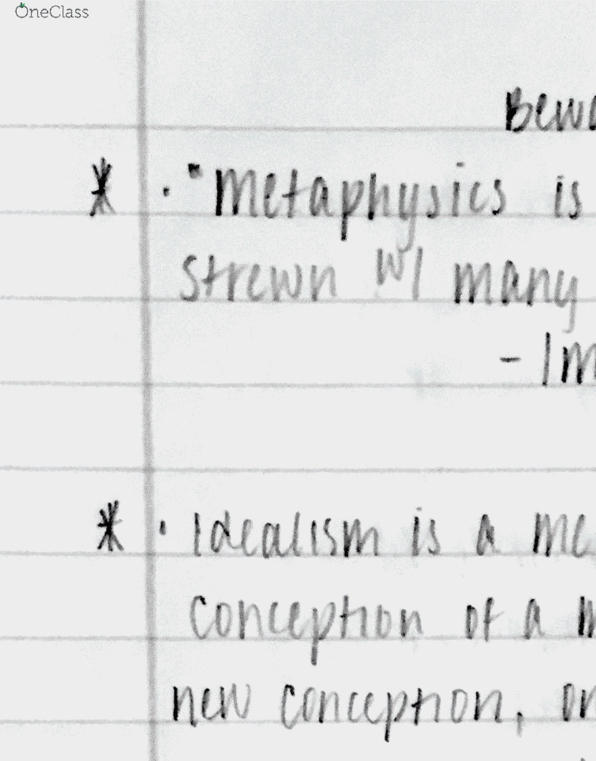 OneClass
Bewa
* · "Metaphysics is
strewn w/ many
- Im
* · Idealism is a me
conception of a m
new conception, or